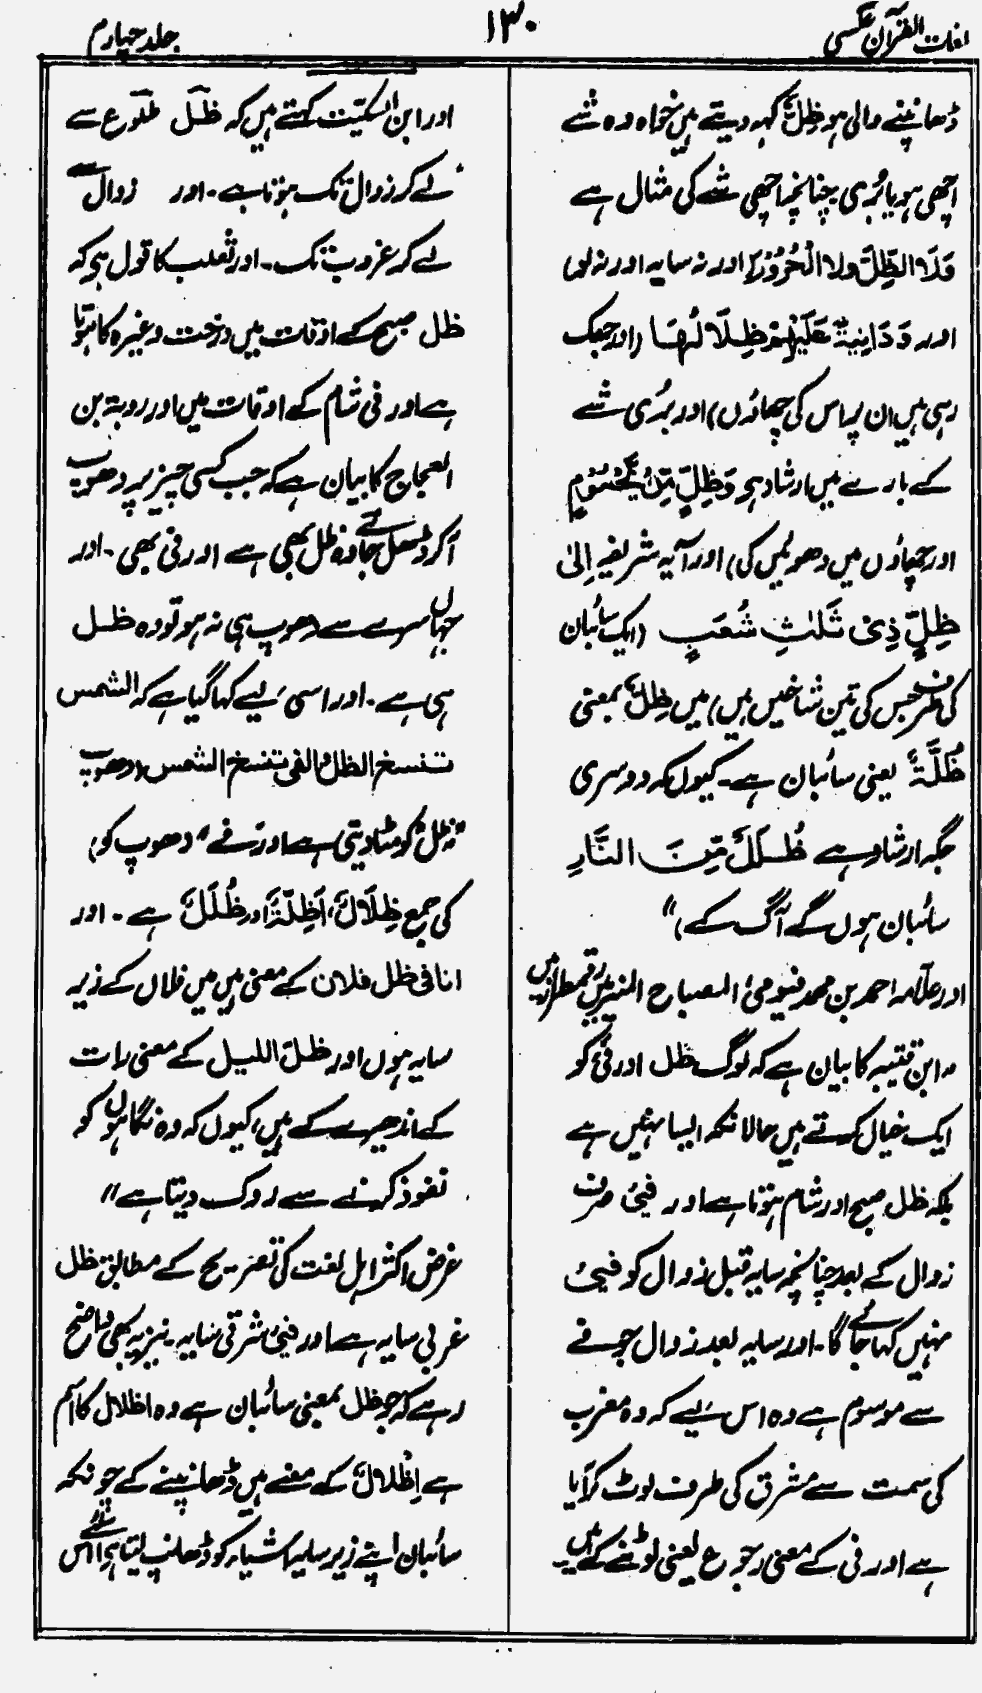 لغات القرآن عکسی
۱۳۰
جلد چہارم
ڈھانپنے والی ہو ظِلٌّ کہہ دیتے ہیں خواہ وہ شے
اچھی ہو یا بُری چنانچہ اچھی شے کی مثال ہے
وَلَا الظِّلُّ ولا الْحُرُوْرُ اور نہ سایہ اور نہ لو)
اور وَ دَانِيَةً عَلَيْهِمْ ظِلٰلُهَا (اور جھک
رہی ہیں ان پر اس کی چھائوں) اور بُری شے
کے بارے میں ارشاد ہی وَظِلٍّ مِّنْ يَّحْمُوْمٍ
اور چھاؤں میں دھوئیں کی) اور آیہ شریفہ اِلیٰ
ظِلٍّ ذِیْ ثَلٰثِ شُعَبٍ (ایک سائبان
کی طرف جس کی تین شاخیں ہیں) میں ظِلٌّ بمعنی
ظُلَّةٌ یعنی سائبان ہے۔ کیوں کہ دوسری
جگہ ارشاد ہے ظُلَلٌ مِّنَ النَّارِ
سائبان ہوں گے آگ کے)"
اور علّامہ احمد بن محمد فیومی المصباح المنیر میں رقمطراز ہیں
"ابن قتیبہ کا بیان ہے کہ لوگ ظل اور فَیْ کو
ایک خیال کرتے ہیں حالانکہ ایسا نہیں ہے
بلکہ ظل صبح اور شام ہوتا ہے اور فیئ صرف
زوال کے بعد چنانچہ سایہ قبل زوال کو فیئ
نہیں کہا جائے گا۔ اور سایہ بعد زوال جو فے
سے موسوم ہے وہ اس لیے کہ وہ مغرب
کی سمت سے مشرق کی طرف لوٹ کر آیا
ہے اور فی کے معنی رجوع یعنی لوٹنے کے ہیں۔
اور ابن السکیت کہتے ہیں کہ ظل طلوع سے
لے کر زوال تک ہوتا ہے۔ اور زوال سے
لے کر غروب تک۔ اور ثعلب کا قول ہی کہ
ظل صبح کے اوقات میں درخت وغیرہ کا ہوتا
ہے اور فی شام کے اوقات میں اور روبۃ بن
العجاج کا بیان ہے کہ جب کسی چیز پر دھوپ
آکر ڈھل جائے وہ ظل بھی ہے اور فی بھی۔ اور
جہاں سرے سے دھوپ ہی نہ ہو تو وہ ظل
ہی ہے۔ اور اسی لیے کہا گیا ہے کہ الشمس
تنسخ الظل والفی تنسخ الشمس (دھوپ
"ظل" کو مٹا دیتی ہے اور فے "دھوپ کو)
کی جمع ظِلَالٌ، اَظِلَّةٌ اور ظُلَلٌ ہے۔ اور
انا فی ظل فلان کے معنی ہیں میں فلاں کے زیر
سایہ ہوں اور ظل اللیل کے معنی رات
کے اندھیرے کے ہیں، کیوں کہ وہ نگاہوں کو
نفوذ کرنے سے روک دیتا ہے"
غرض اکثر اہل لغت کی تصریح کے مطابق ظل
غربی سایہ ہے اور فیئ شرقی سایہ۔ نیز یہ بھی واضح
رہے کہ جو ظل بمعنی سائبان ہے وہ اظلال کا اسم
ہے اِظْلَالٌ کے معنے ہیں ڈھانپنے کے چونکہ
سائبان اپنے زیر سایہ اشیاء کو ڈھانپ لیتا ہی اس لئے